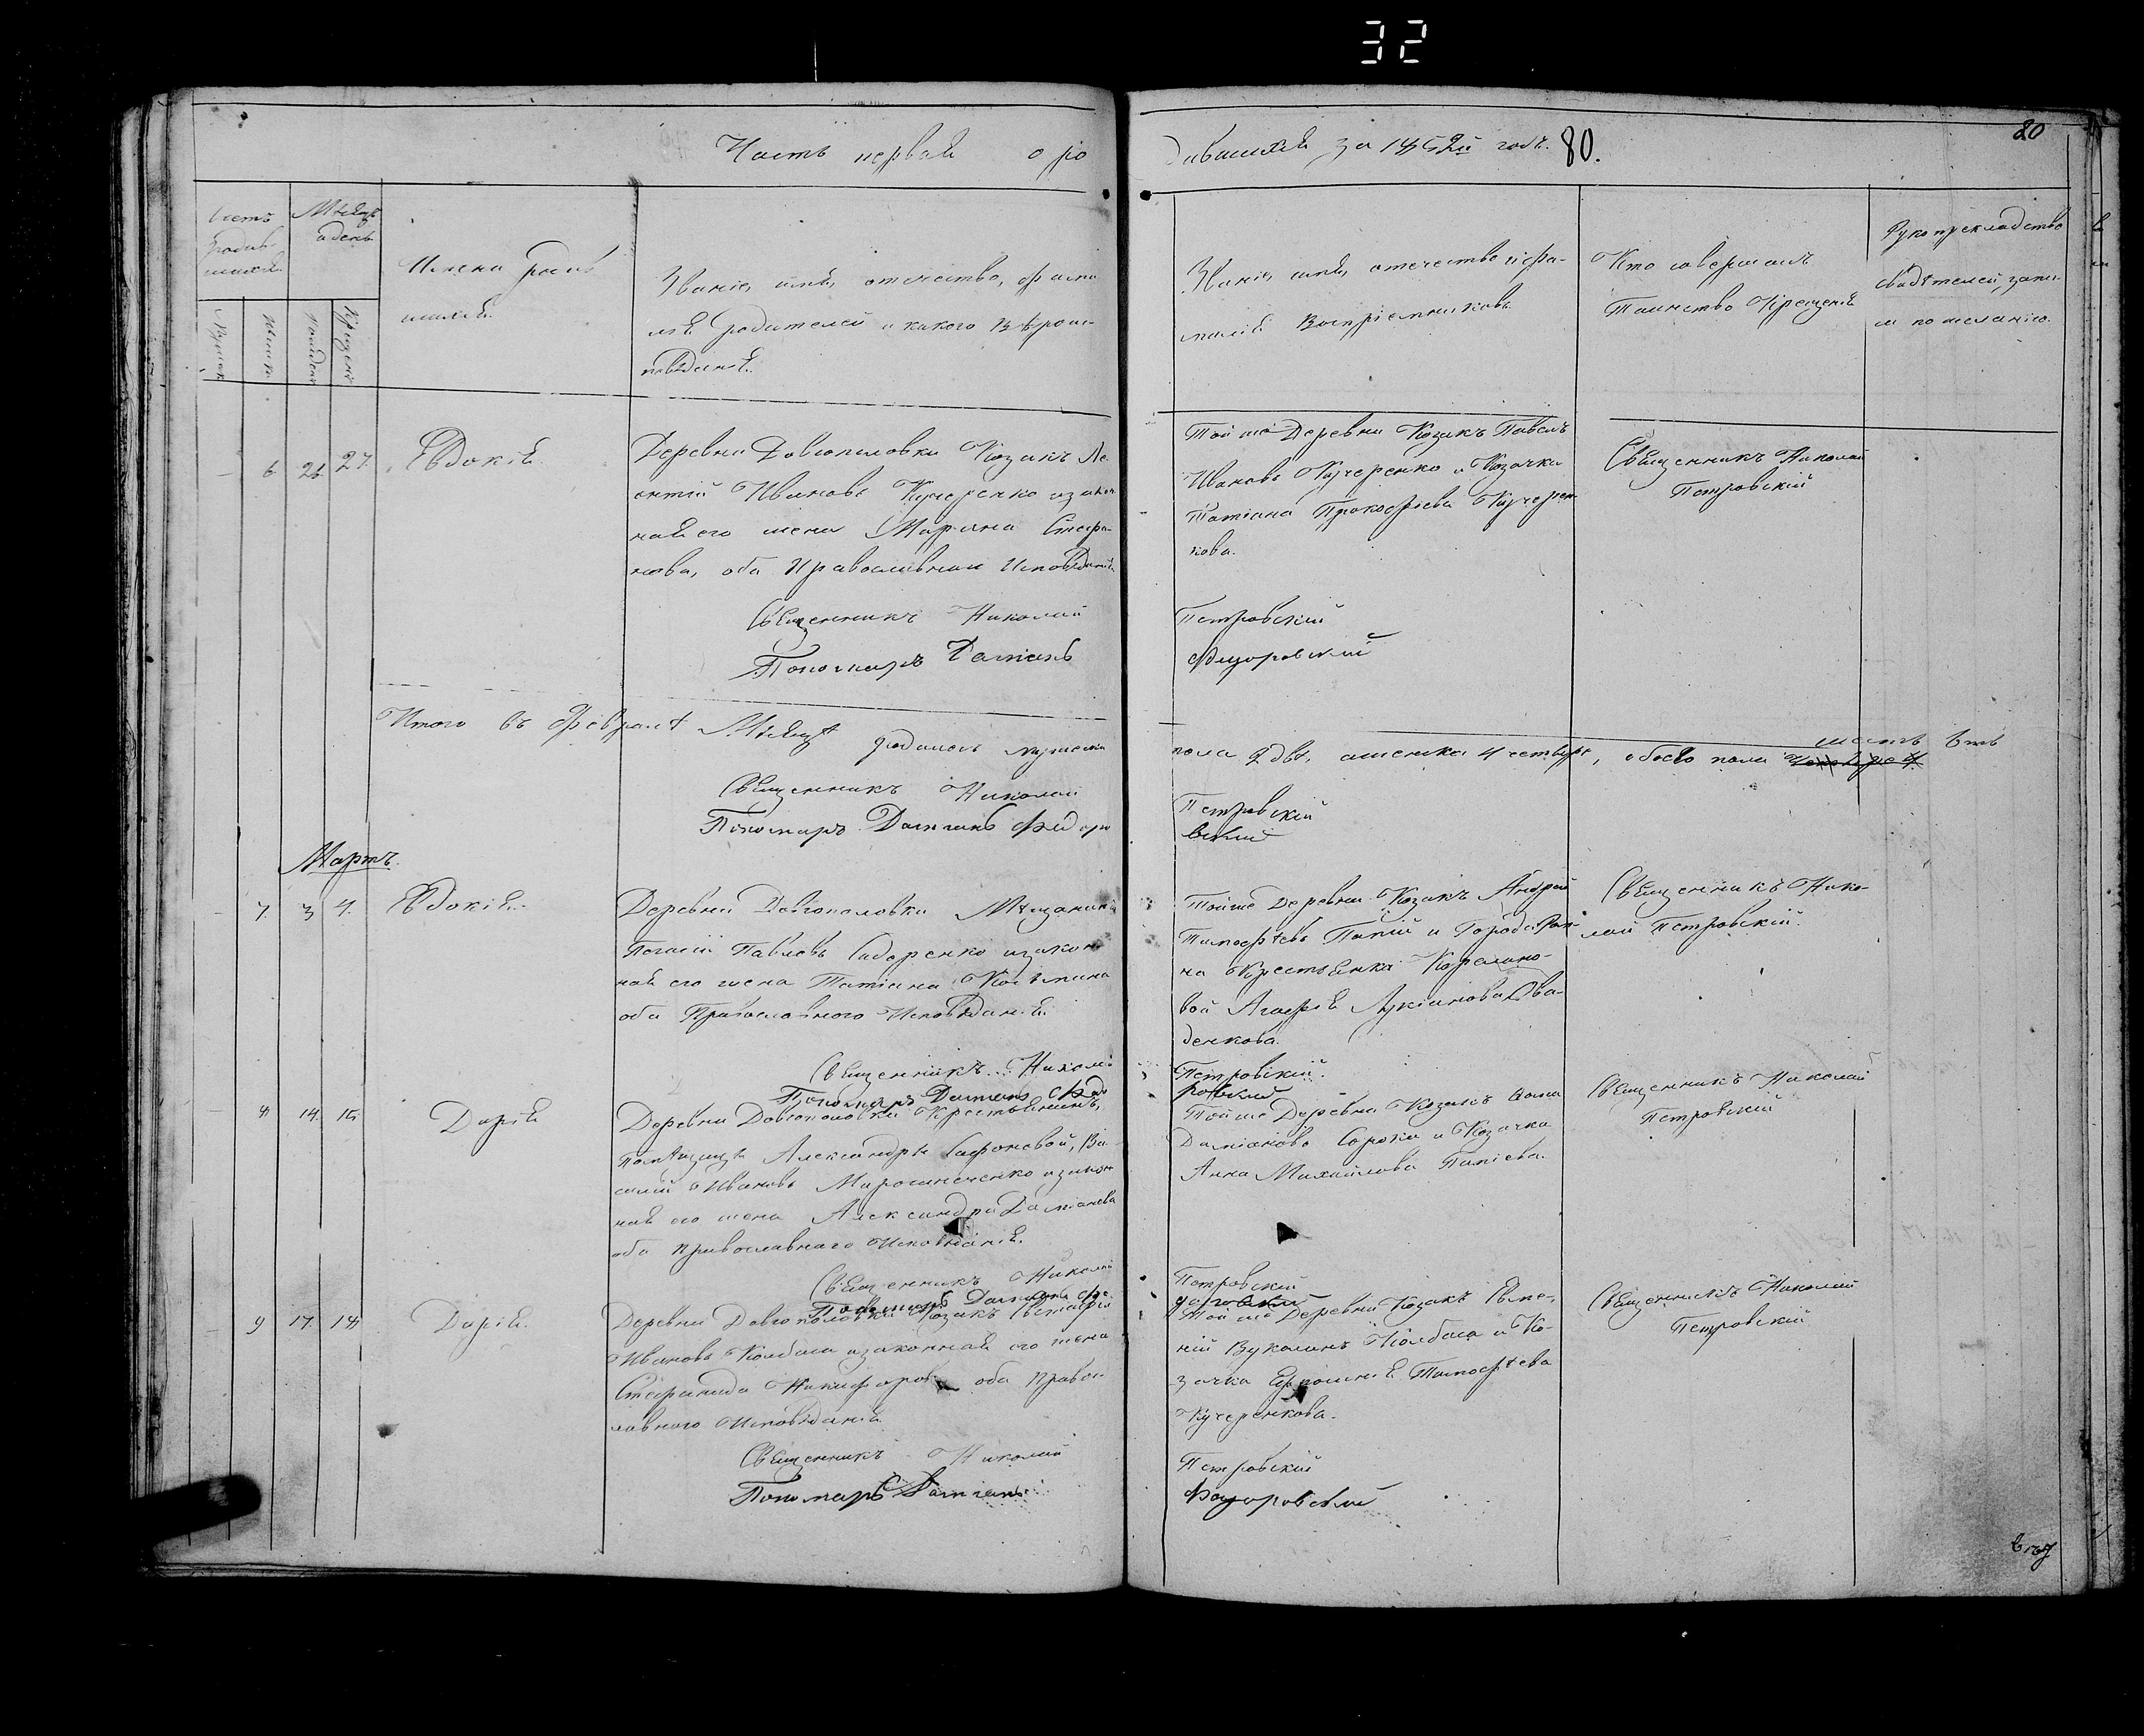 32
Часть первая о ро
дившихся за 1852й годъ. 80.
80
Счетъ родив-
шихся.
Мѣсяцъ
и день
Имена родив
шихся.
Званіе, имя, отчество, фами
лія родителей и какого вѣрои-
повѣданія.
Званіе, имя, отчество и фа-
милія Воспріемниковъ
Кто совершалъ
Таинство Крещенія
Рукоприкладство
свидѣтелей записи
по желанію.
6. 26 27. Евдокія.
Деревни Довгополовки Козакъ Ле
онтій Ивановъ Кучеренко и закон
ная его жена Марина Стефа-
нова, оба Православнаго Исповѣданія
Священникъ Николай
Пономарь Даміанъ
Той же Деревни Козакъ Павелъ
Ивановъ Кучеренко и Козачка
Татіана Прокофіева Кучерен
кова.
Петровскій
Фидоровскій
Священникъ Николай
Петровскій
Итого въ Февралѣ Мѣсяцѣ родилось мужеска
пола 2 два, а женска 4 четыре, обоего пола шесть
Священникъ Николай
Пономарь Даміанъ Фидоро
Петровскій
вский
Мартъ.
7. 3 4. Евдокія.
Деревни Довгополовки Мѣщанинъ
Павловъ Сидоренко и закон
ная его жена Татіана Косьмина
оба Православнаго Исповѣданія.
Священникъ Николай
Пономарь Даміанъ Фидо
Той же Деревни Козакъ Андрей
Тимофѣевъ Папій и
на Крестьянка
вой Агафія Лукіанова
денкова.
Петровскій.
ровский
Священникъ Нико-
лай Петровскій.
8 14. 15. Дарія
Деревни Довгополовки Крестьянинъ,
помѣщицы Александры Сафоновой, Ва
силій Ивановъ Мирошниченко и закон
ная его жена Александра Даміанова
оба православнаго Исповѣданія.
Священникъ Николай
Пономарь Даміанъ Фе
Той же Деревни Козакъ
Даміановъ Сорока и Козачка
Анна Михайлова Папіева.
Петровскій
доровский
Священникъ Николай
Петровскій
9 17. 18 Дарія.
Деревни Довгополовки Козакъ Евстафій
Ивановъ Колбаса и законная его жена
Стефанида Никифорова оба Правос-
лавнаго Исповѣданія
Священникъ Николай
Пономарь Даміанъ
Той же Деревни Козакъ Евге-
ній Вуколинъ Колбаса и Ко-
зачка Ефросинія Тимофѣева
Кучеренкова.
Петровскій
Фидоровскій
Священникъ Николай
Петровскій